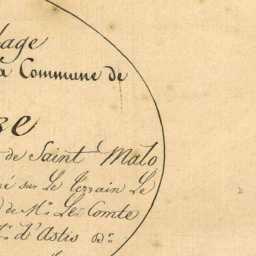 lage
la Commune de
ze
de Saint Malo
né sur Le Terrain Le
de Mr. Le Comte
Mr. d'Astis Bon.